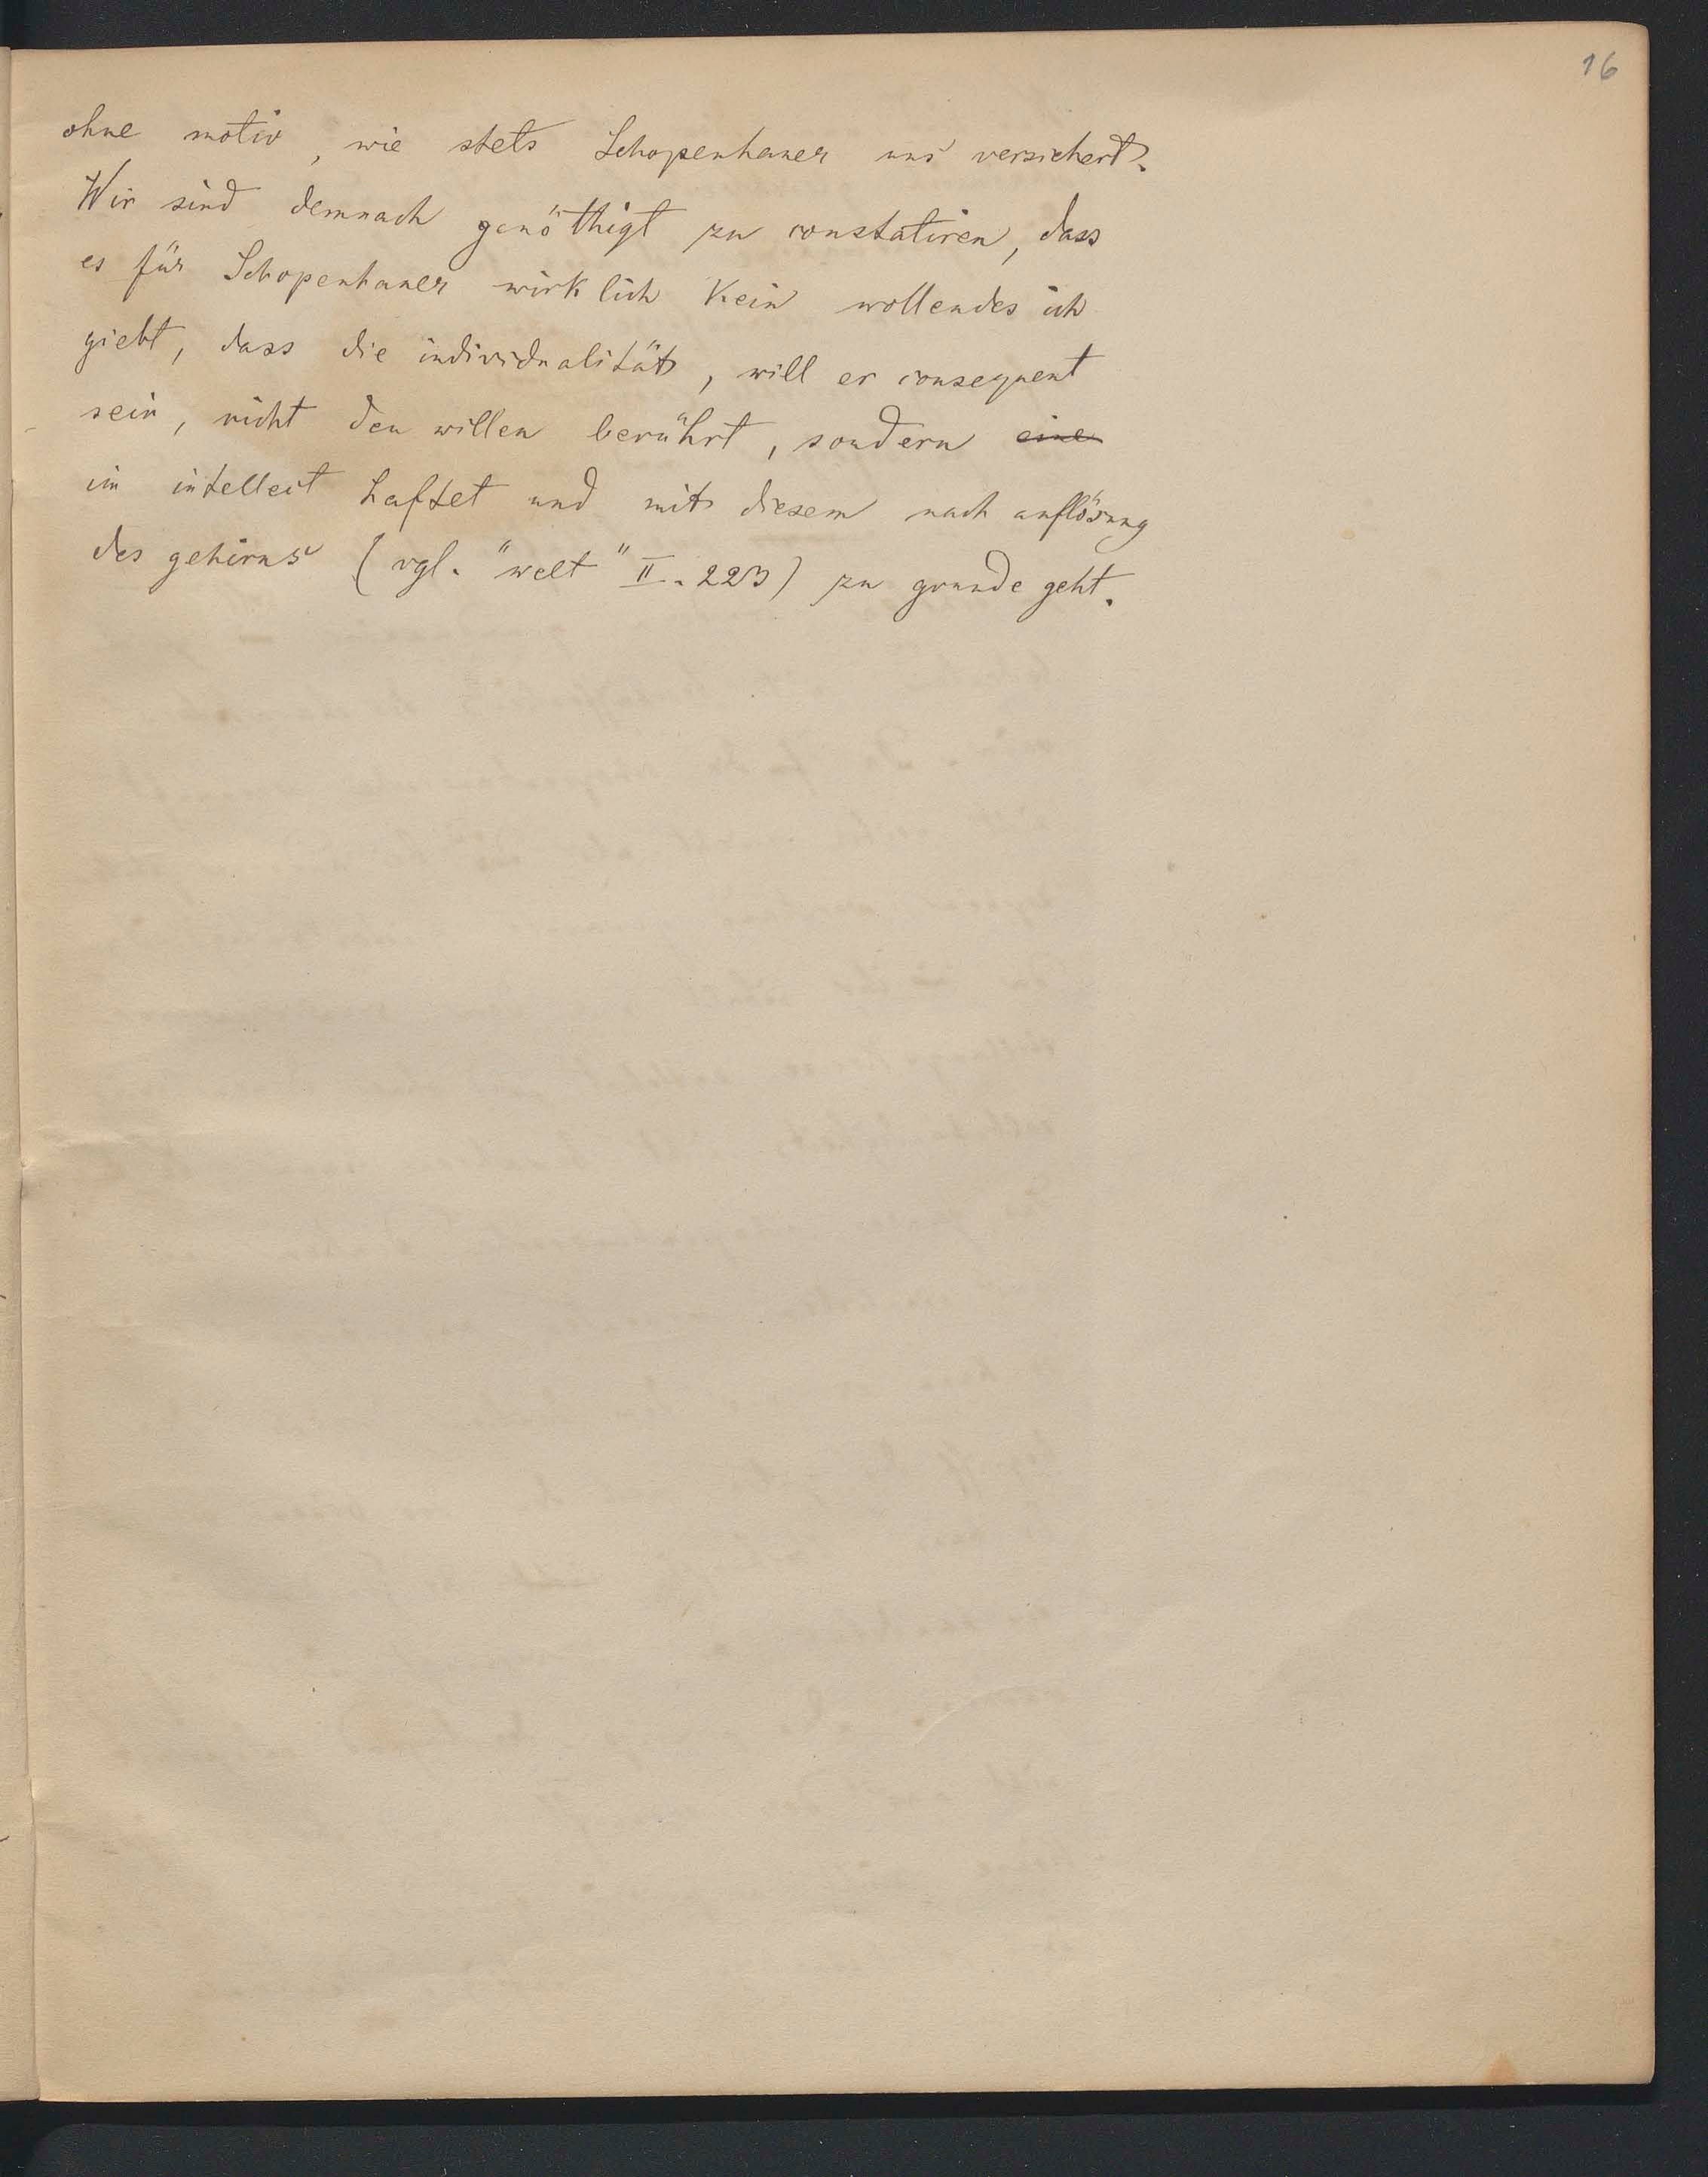 16
ohne motiv, wie stets Schopenhauer uns versichert.
Wir sind demnach genöthigt zu constatiren, dass
es für Schopenhauer wirklich kein wollendes ich
giebt, dass die individualität, will er consequent
sein, nicht den willen berührt, sondern eine
im intellect haftet und mit diesem nach auflösung
des gehirns (vgl. "welt" II. 223) zu grunde geht.